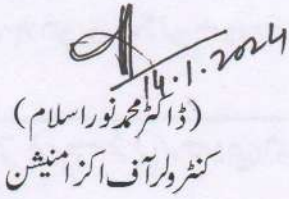 14.1.2024
(ڈاکٹر محمد نور اسلام)
کنٹرولر آف اکزامنیشن